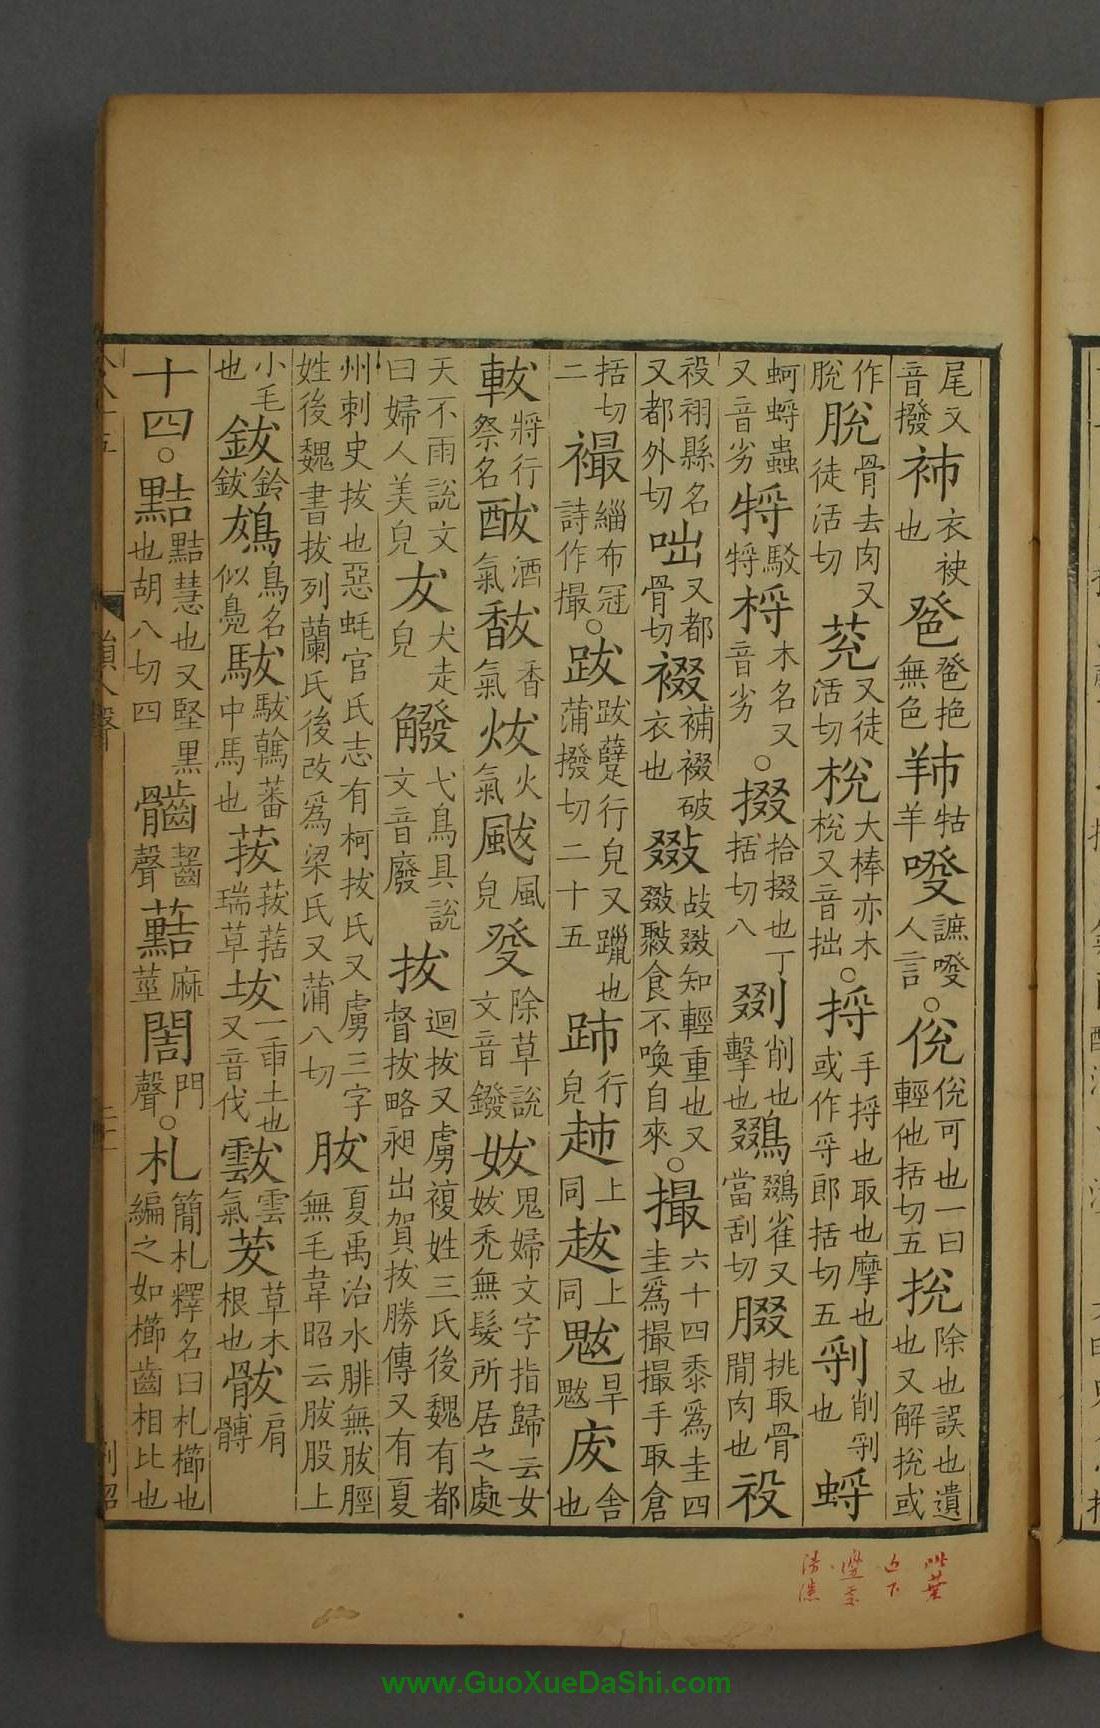 尾又音撥𧘟衣被也𦫙𦫙艴無色𦍮牯羊𠿑譕𠿑人言○侻侻可也一曰輕他括切五挩除也誤也遺也又解挩或
作脫脫骨去肉又徒活切莌又徒活切梲大棒亦木梲又音拙○捋手捋也取也摩也或作寽郎括切五㓩削㓩也蛶
蚵蛶蟲又音劣㸹駁㸹㭩木名又音劣○掇拾掇也丁括切八剟削也擊也鵽鵽雀又當刮切腏挑取骨間肉也祋
祋祤縣名又都外切咄又都骨切裰補裰破衣也敠战敠知輕重也又敠㝡食不喚自來○撮六十四黍爲圭四圭爲撮撮手取倉
括切二襊緇布冠詩作撮○跋跋躠行皃又躐也蒲撥切二十五䟛行皃𧺺上同䞳上同魃旱魃废舍也
軷將行祭名䣪酒氣馛香氣炦火氣颰風皃癹除草說文音鏺妭鬼婦文字指歸云女妭秃無髮所居之處
天不雨說文曰婦人美皃犮犬走皃䚨弋鳥具說文音廢拔迴拔又虜複姓三氏後魏有都督拔略昶出賀拔勝傳又有夏
州刺史拔也惡蚝官氏志有柯拔氏又虜三字姓後魏書拔列蘭氏後改爲梁氏又蒲八切胈夏禹治水腓無胈脛無毛韋昭云胈股上
小毛也鈸鈴鈸䳊鳥名似鳧䮂䮂䮧蕃中馬也菝菝葀瑞草坺一臿土也又音伐䨚雲氣茇草木根也骳肩髆
十四○黠黠慧也又堅黑也胡八切四䯏齧聲䕸麻莖䦖門聲○札簡札釋名曰札櫛也編之如櫛齒相比也
此葉
www.GuoXueDaShi.com